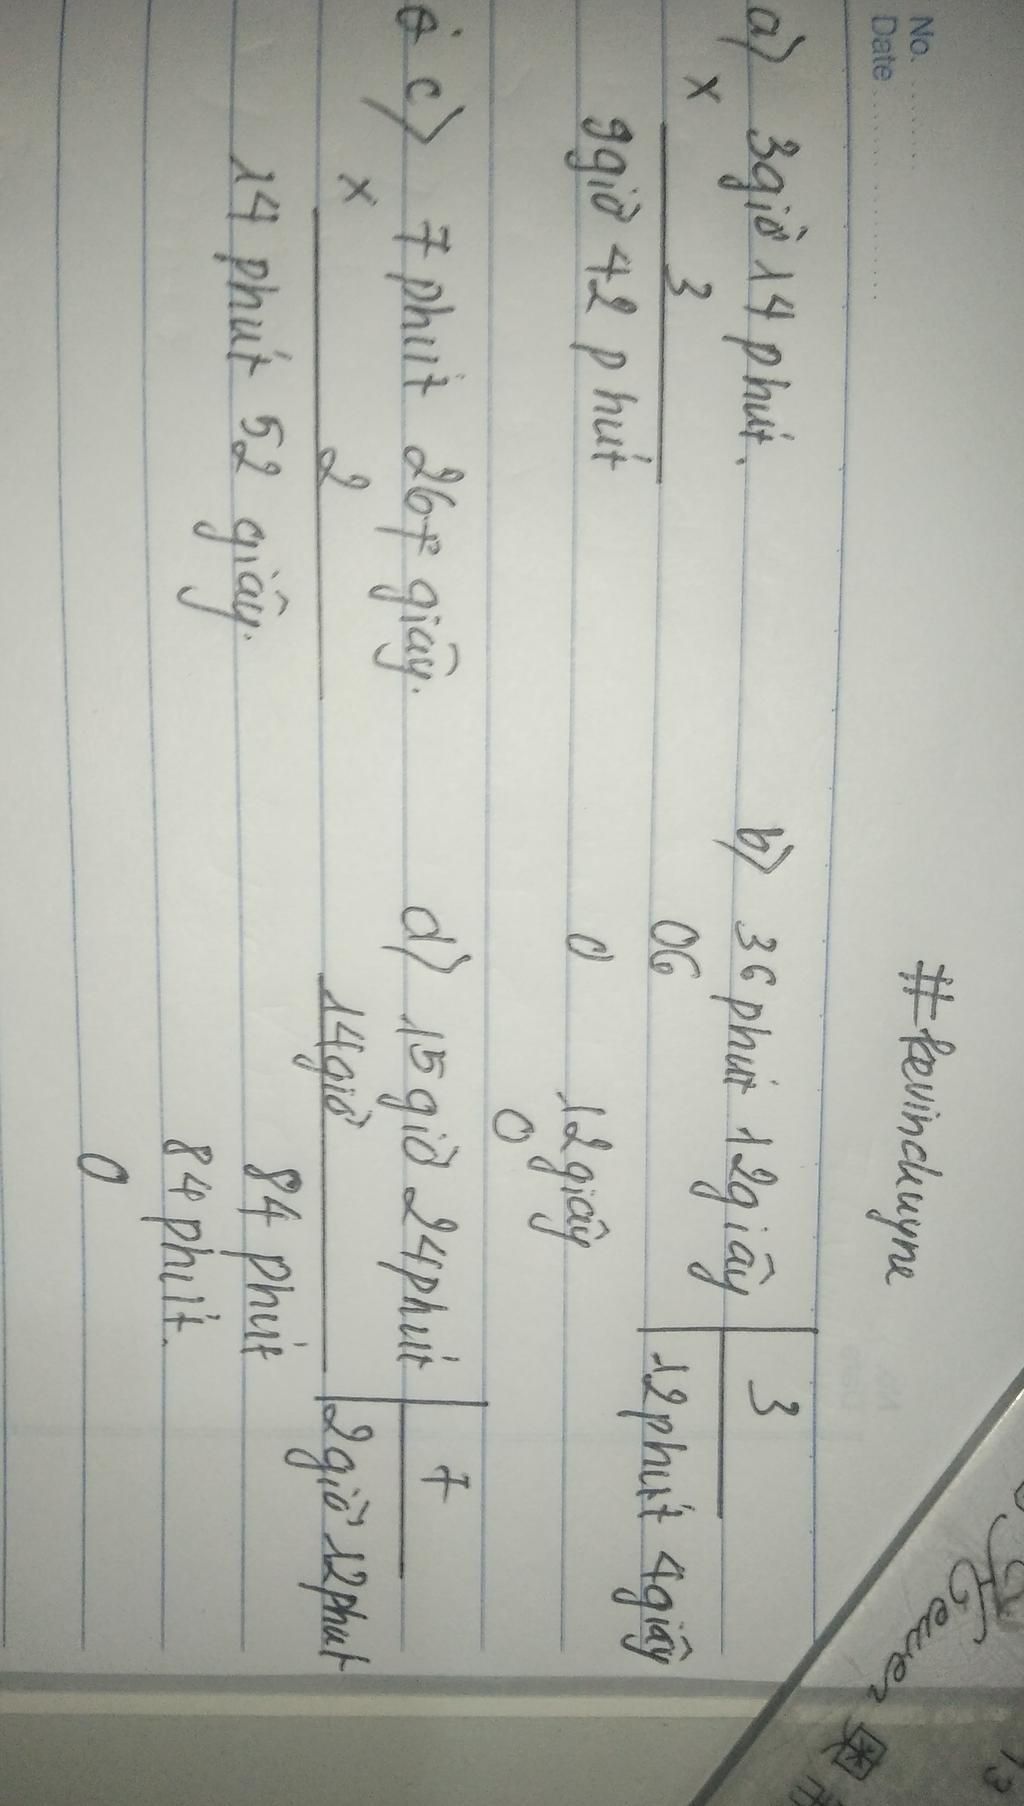 No.
Date
#kevinchuyne
a) 3giờ 14 phút.
x 3
9giờ 42 phút
b) 36 phút 12giây 3
06 12phút 4giây
0 12giây
0
c) 7 phút 26 giây.
x 2
14 phút 52 giây.
d) 15 giờ 24phút 7
14giờ 2giờ 12phút
84 phút
84 phút.
0